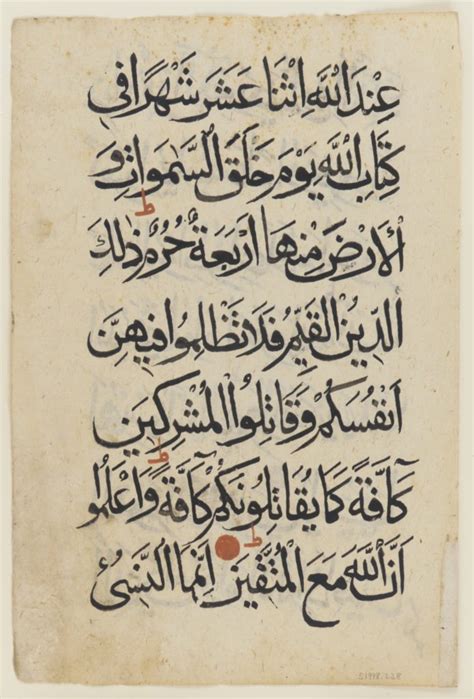 عِنْدَ اللهِ اثْنَا عَشَرَ شَهْرًا فِي
كِتَابِ اللهِ يَوْمَ خَلَقَ السَّمٰوَاتِ وَ
الْاَرْضَ مِنْهَا اَرْبَعَةٌ حُرُمٌ ذٰلِكَ
الدِّينُ الْقَيِّمُ فَلَا تَظْلِمُوا فِيهِنَّ
اَنْفُسَكُمْ وَقَاتِلُوا الْمُشْرِكِينَ
كَآفَّةً كَمَا يُقَاتِلُونَكُمْ كَآفَّةً وَاعْلَمُوا
اَنَّ اللهَ مَعَ الْمُتَّقِينَ اِنَّمَا النَّسِئُ
S1998.228